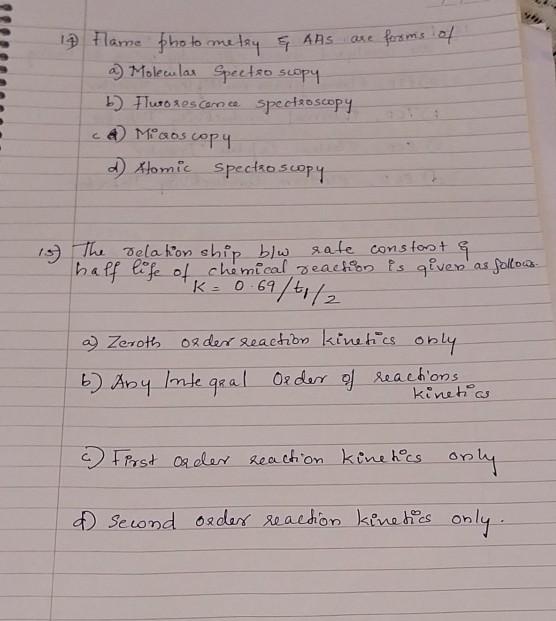 14) Flame photometry & AAS are forms of
a) Molecular Spectroscopy
b) Flurorescence spectroscopy
c) Microscopy
d) Atomic spectroscopy
15) The relationship b/w rate constant &
half life of chemical reaction is given as follows.
K = 0.69/t1/2
a) Zeroth order reaction kinetics only
b) Any Integral Order of reactions
kinetics
c) First order reaction kinetics only
d) Second order reaction kinetics only.